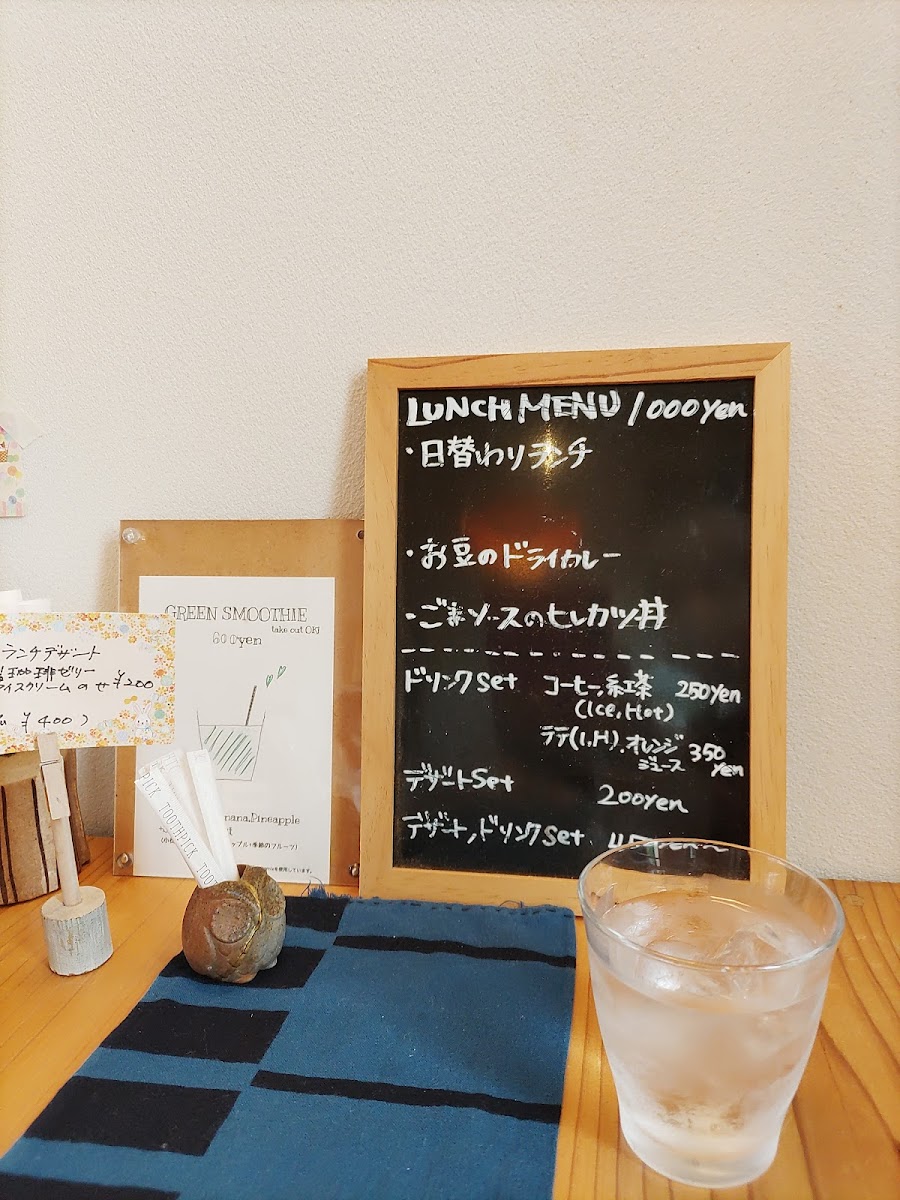 LUNCH MENU 1000yen
・日替わりランチ
・お豆のドライカレー
・ごまソースのヒレカツ丼
ドリンクSet コーヒー、紅茶 250yen
(Ice, Hot)
ラテ(I,H)、オレンジジュース 350yen
デザートSet
200yen
デザート,ドリンクSet
GREEN SMOOTHIE
take out OK!
600yen
nana,Pineapple
ップル+季節のフルーツ)
を使用しています。
ランチデザート
珈琲ゼリー
アイスクリームのせ ¥200
¥400)
PICK TOOTHPICK TOO